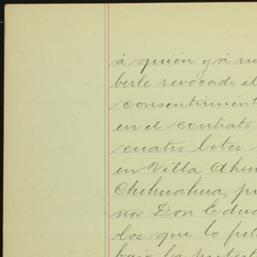 á quién y á no
berle revocado el
consentimient
en el contrato
cuatro lotes
en Villa Ahu
Chihuahua, p
nor Don Edua
los que lo
bajo la